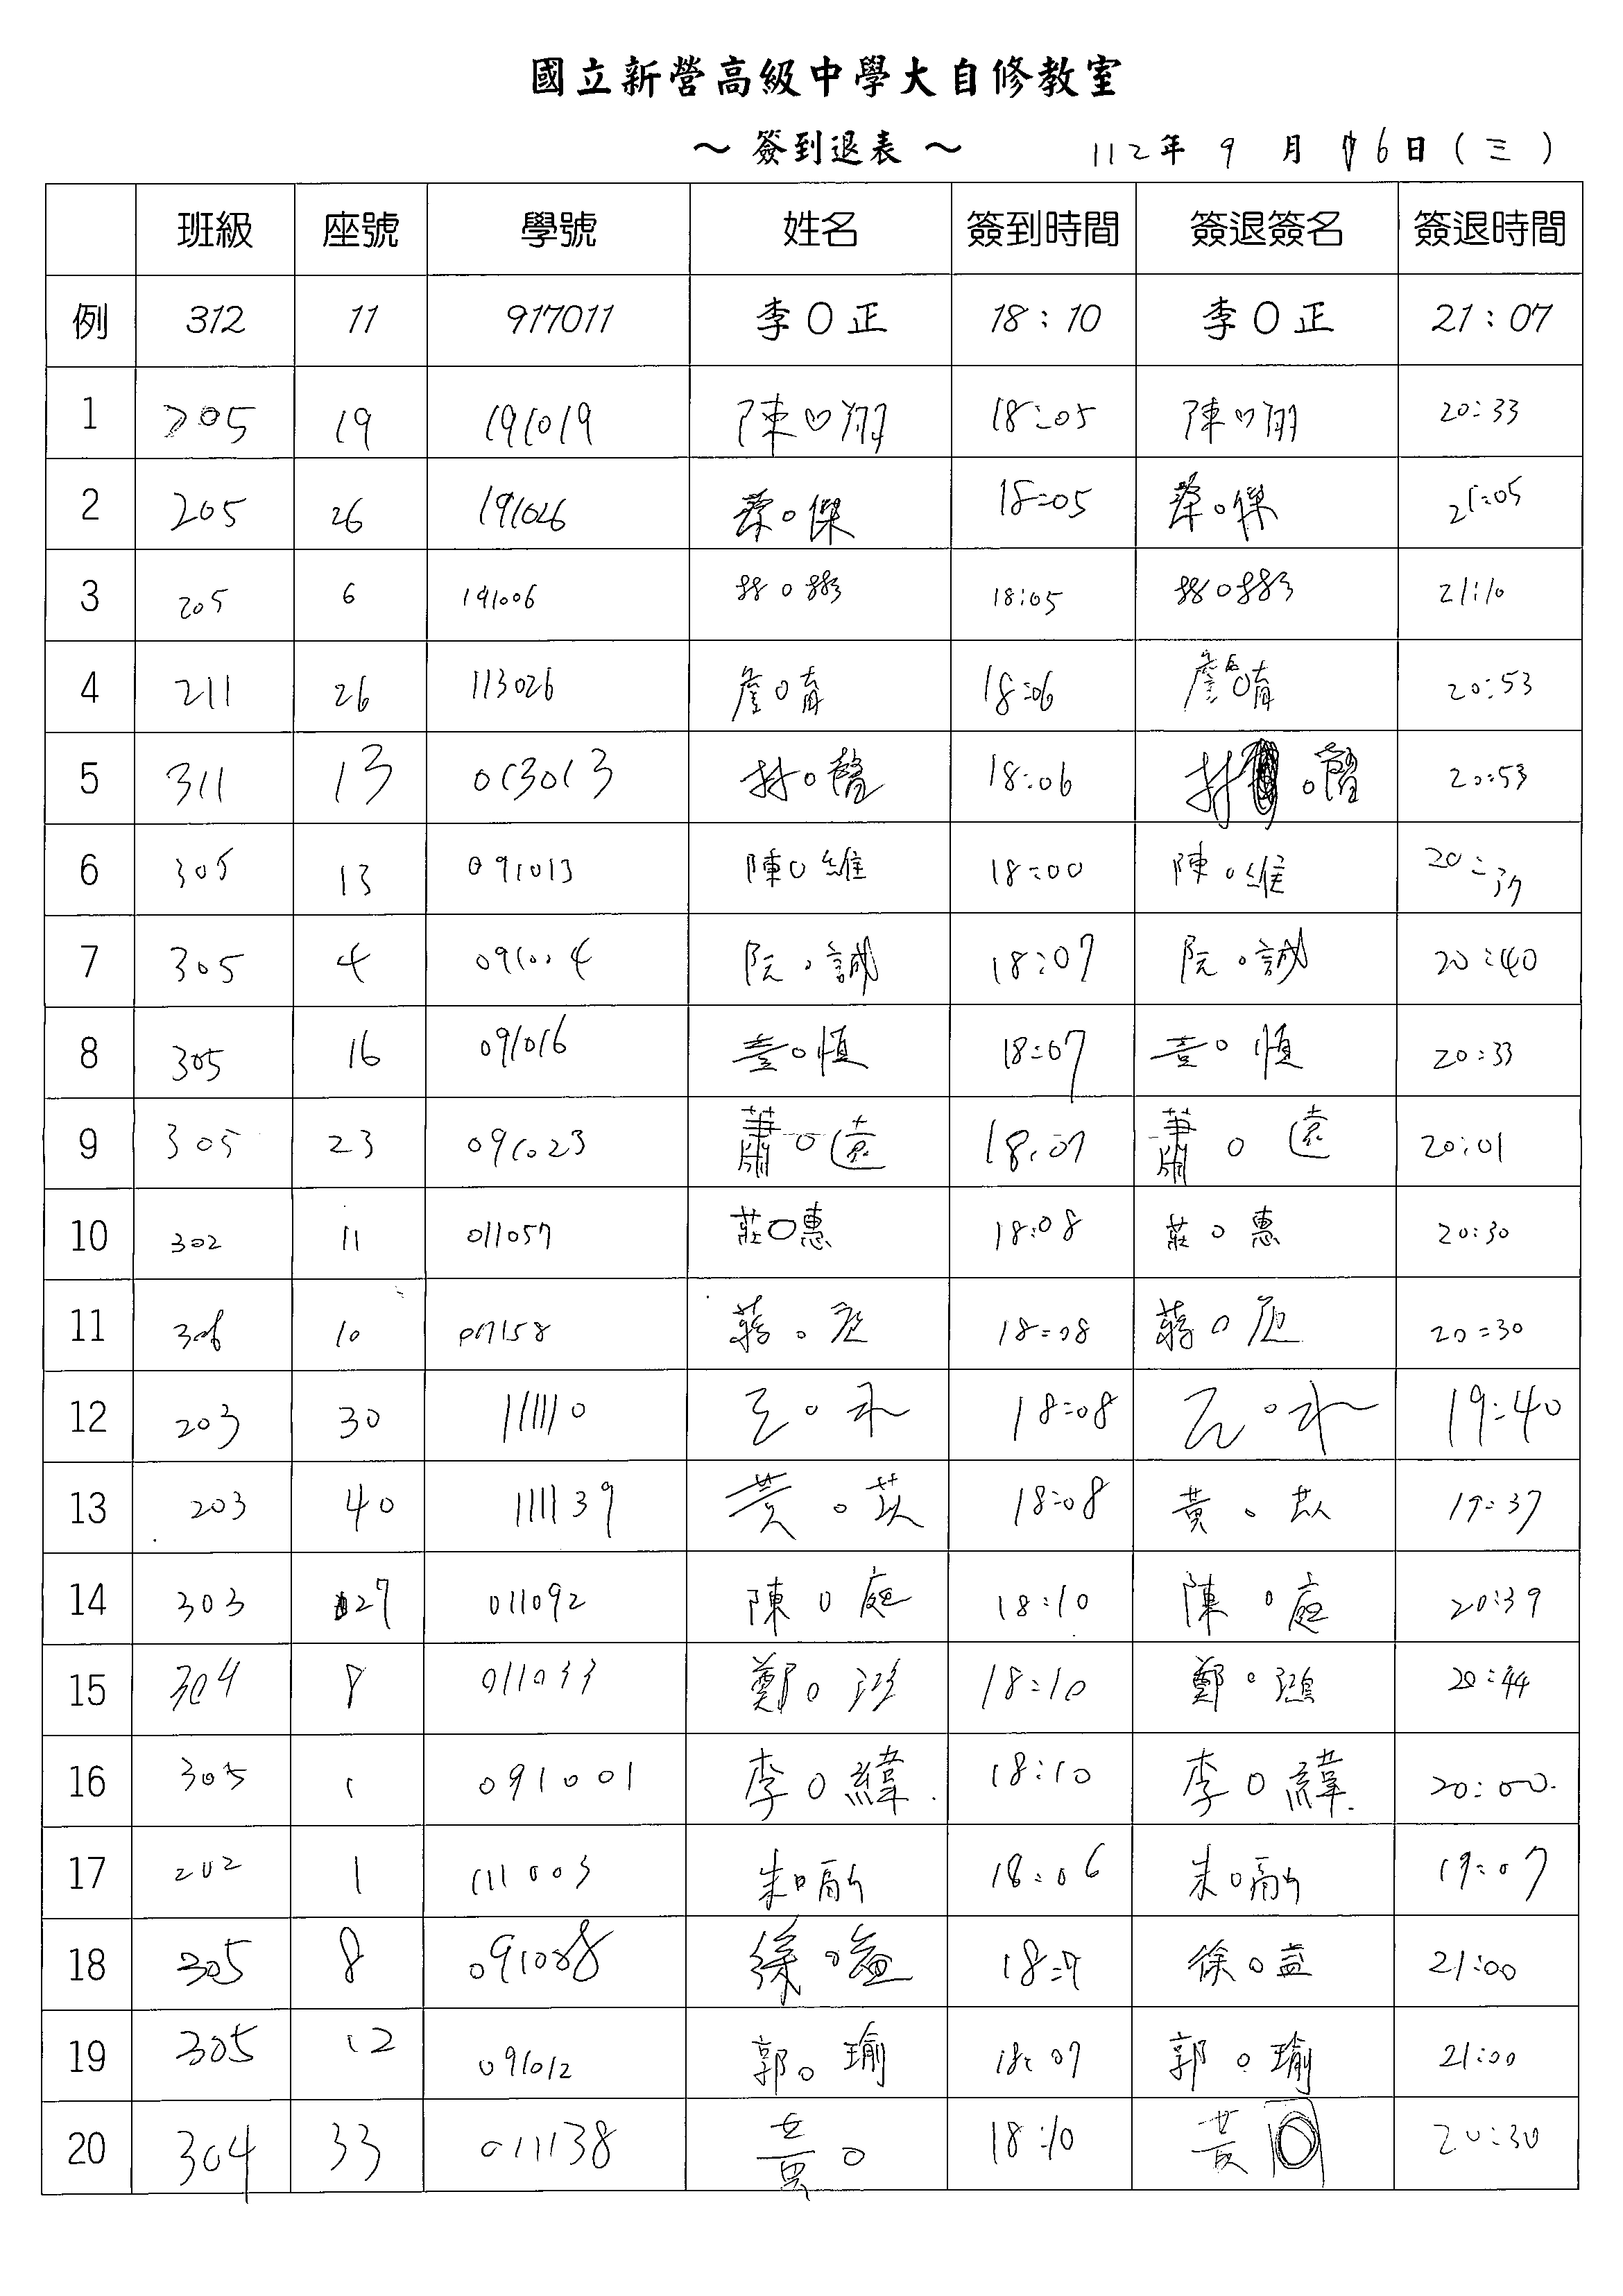 國立新營高級中學大自修教室
～ 簽到退表 ～ 112年 9 月 6日 ( 三 )
班級 座號 學號 姓名 簽到時間 簽退簽名 簽退時間
例 312 11 917011 李O正 18:10 李O正 21:07
1 205 19 191019 陳 翔 18:05 陳 翔 20:33
2 205 26 191026 蔡O傑 18:05 蔡O傑 21:05
3 205 6 191006 18:05 21:10
4 211 26 113026 詹O 18:06 詹O 20:53
5 311 13 013013 18:06 20:53
6 305 13 091013 陳O維 18:00 陳O維 20:37
7 305 4 091004 阮O誠 18:07 阮O誠 20:40
8 305 16 091016 O慎 18:07 O慎 20:33
9 305 23 091023 蕭O遠 18:07 蕭O遠 20:01
10 302 11 011057 莊O惠 18:08 莊O惠 20:30
11 306 10 蔣O 18:08 蔣O 20:30
12 203 30 111110 18:08 19:40
13 203 40 111139 黃O 18:08 黃O 19:37
14 303 27 011092 陳O庭 18:10 陳O庭 20:39
15 304 8 011033 鄭O鴻 18:10 鄭O鴻 20:44
16 305 1 091001 李O緯 18:10 李O緯 20:00
17 202 1 111003 朱O 18:06 朱O 19:07
18 305 8 徐O益 徐O益 21:00
19 305 12 091012 郭O瑜 18:07 郭O瑜 21:00
20 304 33 011138 黃O 18:10 黃 20:30